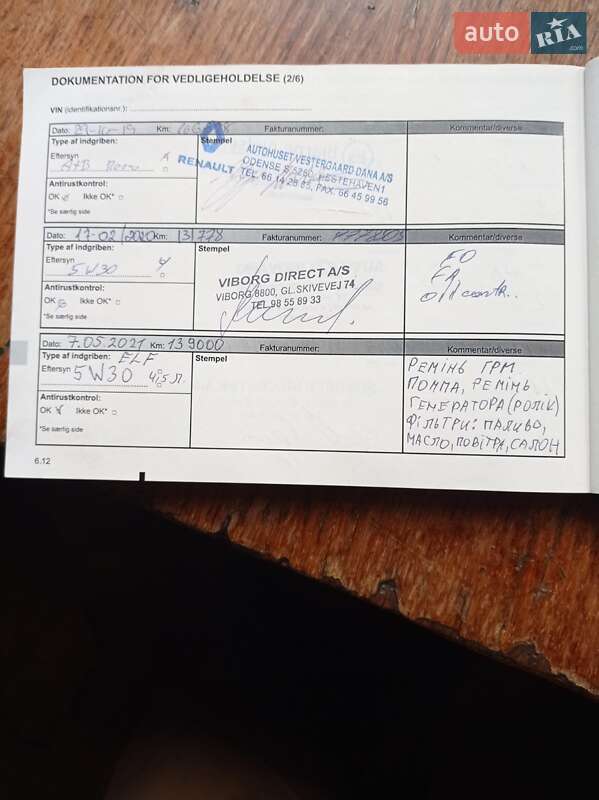 auto RIA.com
DOKUMENTATION FOR VEDLIGEHOLDELSE (2/6)
VIN (identifikationsnr.):
Dato: Km: Fakturanummer: Kommentar/diverse
Type af indgriben: Stempel
Eftersyn
RENAULT
AUTOHUSET VESTERGAARD DANA A/S
ODENSE S 5260, HESTEHAVEN1
TEL. 66 14 28 85, FAX. 66 45 99 56
Antirustkontrol:
OK Ikke OK*
*Se særlig side
Dato: 17-02/2020 Km: 131778 Fakturanummer: Kommentar/diverse
Type af indgriben: Stempel
Eftersyn
5W30
VIBORG DIRECT A/S
VIBORG 8800, GL.SKIVEVEJ 74
TEL 98 55 89 33
Antirustkontrol:
OK Ikke OK*
*Se særlig side
Dato: 7.05.2021 Km: 139000 Fakturanummer: Kommentar/diverse
Type af indgriben: ELF Stempel
Eftersyn 5W30 4,5 л.
Antirustkontrol:
OK Ikke OK*
*Se særlig side
РЕМІНЬ ГРМ.
ПОМПА, РЕМІНЬ
ГЕНЕРАТОРА (РОЛІК)
ФІЛЬТРИ: ПАЛИВО,
МАСЛО, ПОВІТРЯ, САЛОН
6.12